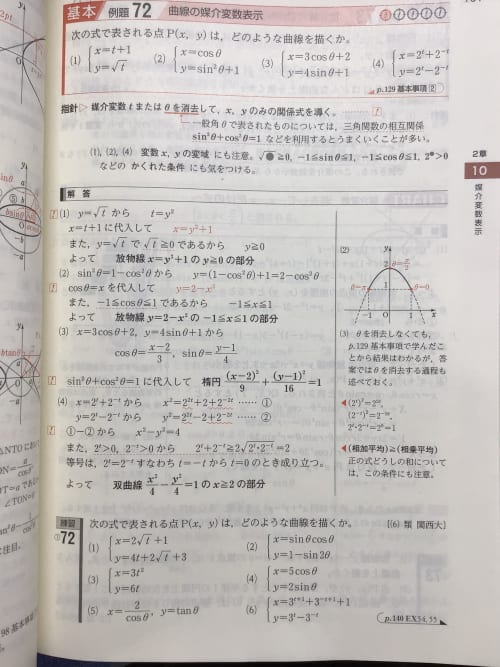 基本 例題 72 曲線の媒介変数表示
次の式で表される点P(x, y)は，どのような曲線を描くか。
(1) {x=t+1 y=√t (2) {x=cosθ y=sin²θ+1 (3) {x=3cosθ+2 y=4sinθ+1 (4) {x=2ᵗ+2⁻ᵗ y=2ᵗ−2⁻ᵗ
p.129 基本事項 2
指針▷ 媒介変数 t または θ を消去して，x，y のみの関係式を導く。
一般角 θ で表されたものについては，三角関数の相互関係
sin²θ+cos²θ=1 などを利用するとうまくいくことが多い。
(1), (2), (4) 変数 x，y の変域 にも注意。√● ≧0, −1≦sinθ≦1, −1≦cosθ≦1, 2●>0
などの かくれた条件 にも気をつける。
2章
10
媒介変数表示
解答
(1) y=√t から t=y²
x=t+1 に代入して x=y²+1
また，y=√t で √t ≧0 であるから y≧0
よって 放物線 x=y²+1 の y≧0 の部分
(2) sin²θ=1−cos²θ から y=(1−cos²θ)+1=2−cos²θ
cosθ=x を代入して y=2−x²
また，−1≦cosθ≦1 であるから −1≦x≦1
よって 放物線 y=2−x² の −1≦x≦1 の部分
(3) x=3cosθ+2, y=4sinθ+1 から
cosθ=(x−2)/3, sinθ=(y−1)/4
sin²θ+cos²θ=1 に代入して 楕円 (x−2)²/9+(y−1)²/16=1
(4) x=2ᵗ+2⁻ᵗ から x²=2²ᵗ+2+2⁻²ᵗ …… ①
y=2ᵗ−2⁻ᵗ から y²=2²ᵗ−2+2⁻²ᵗ …… ②
①−② から x²−y²=4
また，2ᵗ>0, 2⁻ᵗ>0 から 2ᵗ+2⁻ᵗ≧2√2ᵗ･2⁻ᵗ=2
等号は，2ᵗ=2⁻ᵗ すなわち t=−t から t=0 のとき成り立つ。
よって 双曲線 x²/4−y²/4=1 の x≧2 の部分
(2)
y
2
θ=π/2
θ=π
1
θ=0
−1 0 1 x
(3) θ を消去しなくても，
p.129 基本事項で学んだこ
とから結果はわかるが，答
案では θ を消去する過程も
述べておく。
◀(2ᵗ)²=2²ᵗ,
(2⁻ᵗ)²=2⁻²ᵗ,
2ᵗ･2⁻ᵗ=2⁰=1
◀(相加平均)≧(相乗平均)
正の式どうしの和について
は，この条件にも注意。
練習 ①72
次の式で表される点P(x, y)は，どのような曲線を描くか。 [(6) 類 関西大]
(1) {x=2√t+1 y=4t+2√t+3 (2) {x=sinθcosθ y=1−sin2θ
(3) {x=3t² y=6t (4) {x=5cosθ y=2sinθ
(5) x=2/cosθ, y=tanθ (6) {x=3ᵗ⁺¹+3⁻ᵗ⁺¹+1 y=3ᵗ−3⁻ᵗ
p.140 EX54, 55